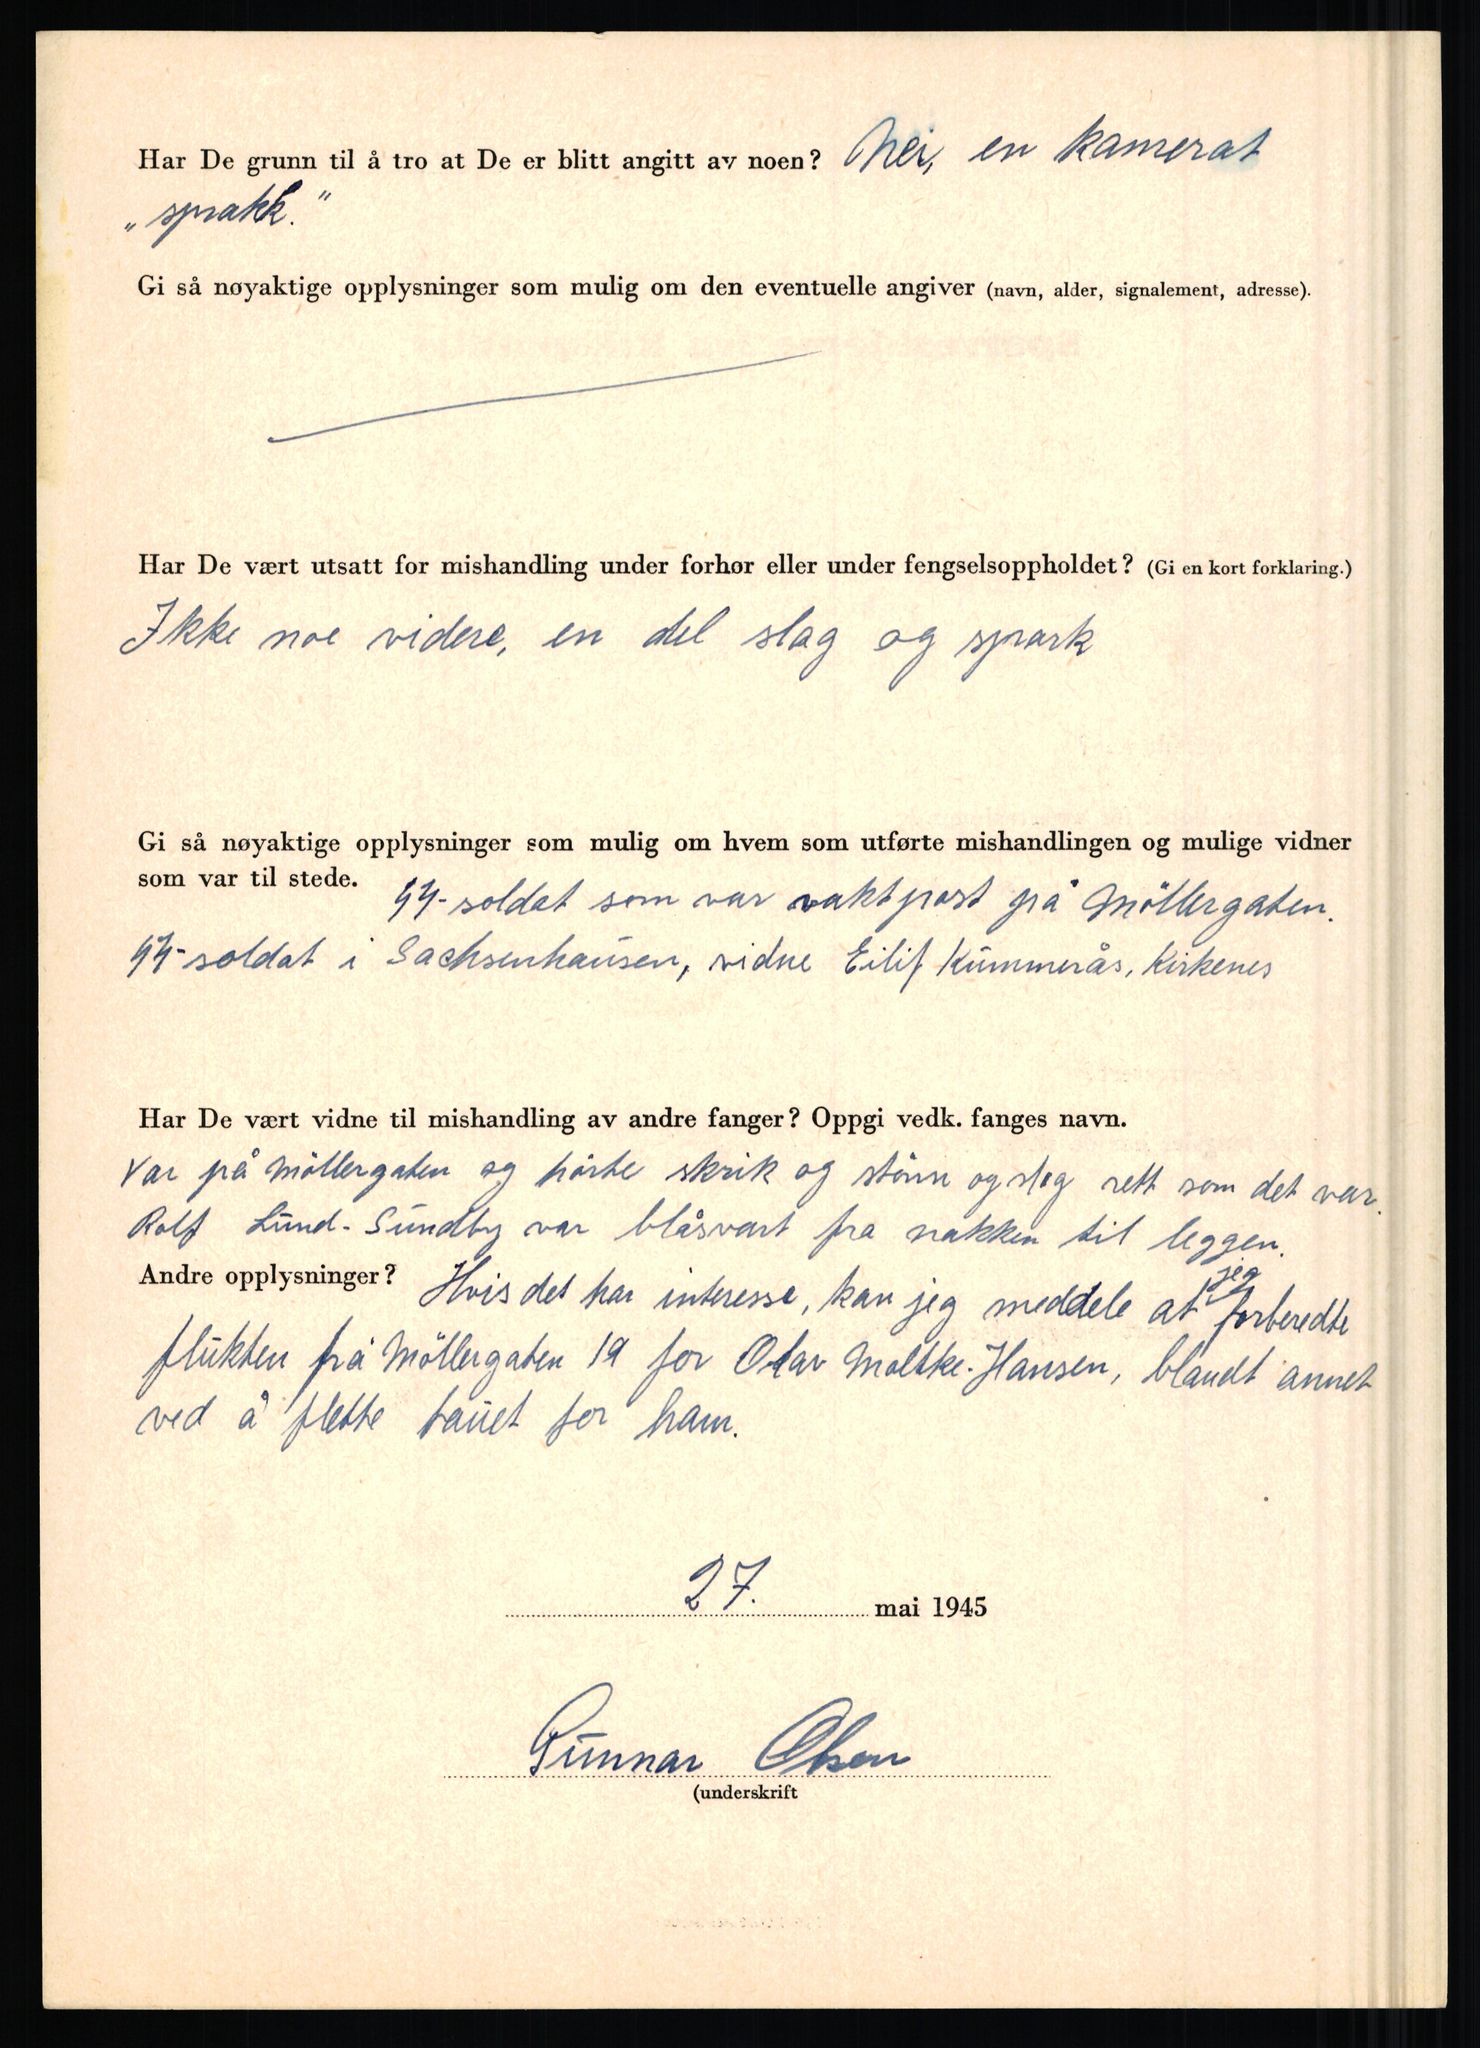 Har De grunn til å tro at De er blitt angitt av noen? Nei, en kamerat
„sprakk.”
Gi så nøyaktige opplysninger som mulig om den eventuelle angiver (navn, alder, signalement, adresse).
Har De vært utsatt for mishandling under forhør eller under fengselsoppholdet? (Gi en kort forklaring.)
Ikke noe videre, en del slag og spark
Gi så nøyaktige opplysninger som mulig om hvem som utførte mishandlingen og mulige vidner
som var til stede. SS-soldat som var vaktpost på Möllergaten.
SS-soldat i Sachsenhausen, vidne Eilif Kummerås, Kirkenes
Har De vært vidne til mishandling av andre fanger? Oppgi vedk. fanges navn.
Var på Möllergaten og hörte skrik og stönn og slag rett som det var.
Rolf Lund-Sundby var blåsvart fra nakken til leggen.
Andre opplysninger? Hvis det har interesse, kan jeg meddele at jeg forberedte
flukten frå Möllergaten 19 for Olav Moltke-Hansen, blandt annet
ved å flette tauet for ham.
27. mai 1945
Gunnar Olsen
(underskrift